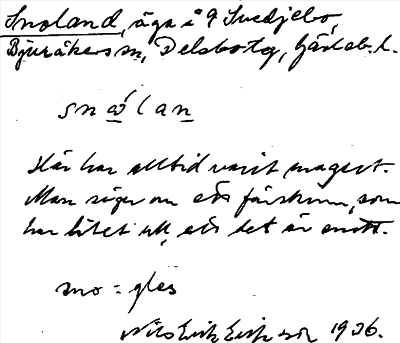 Snoland, äga i Svedjebo,
Bjuråkers sn, Delsbo tg, Gävleb. l.
snålan
Här har alltid varit magert.
Man säger om ett fårskinn, som
har litet ull, att det är snott.
sno = gles
Nils Erik Eriksson 1936.